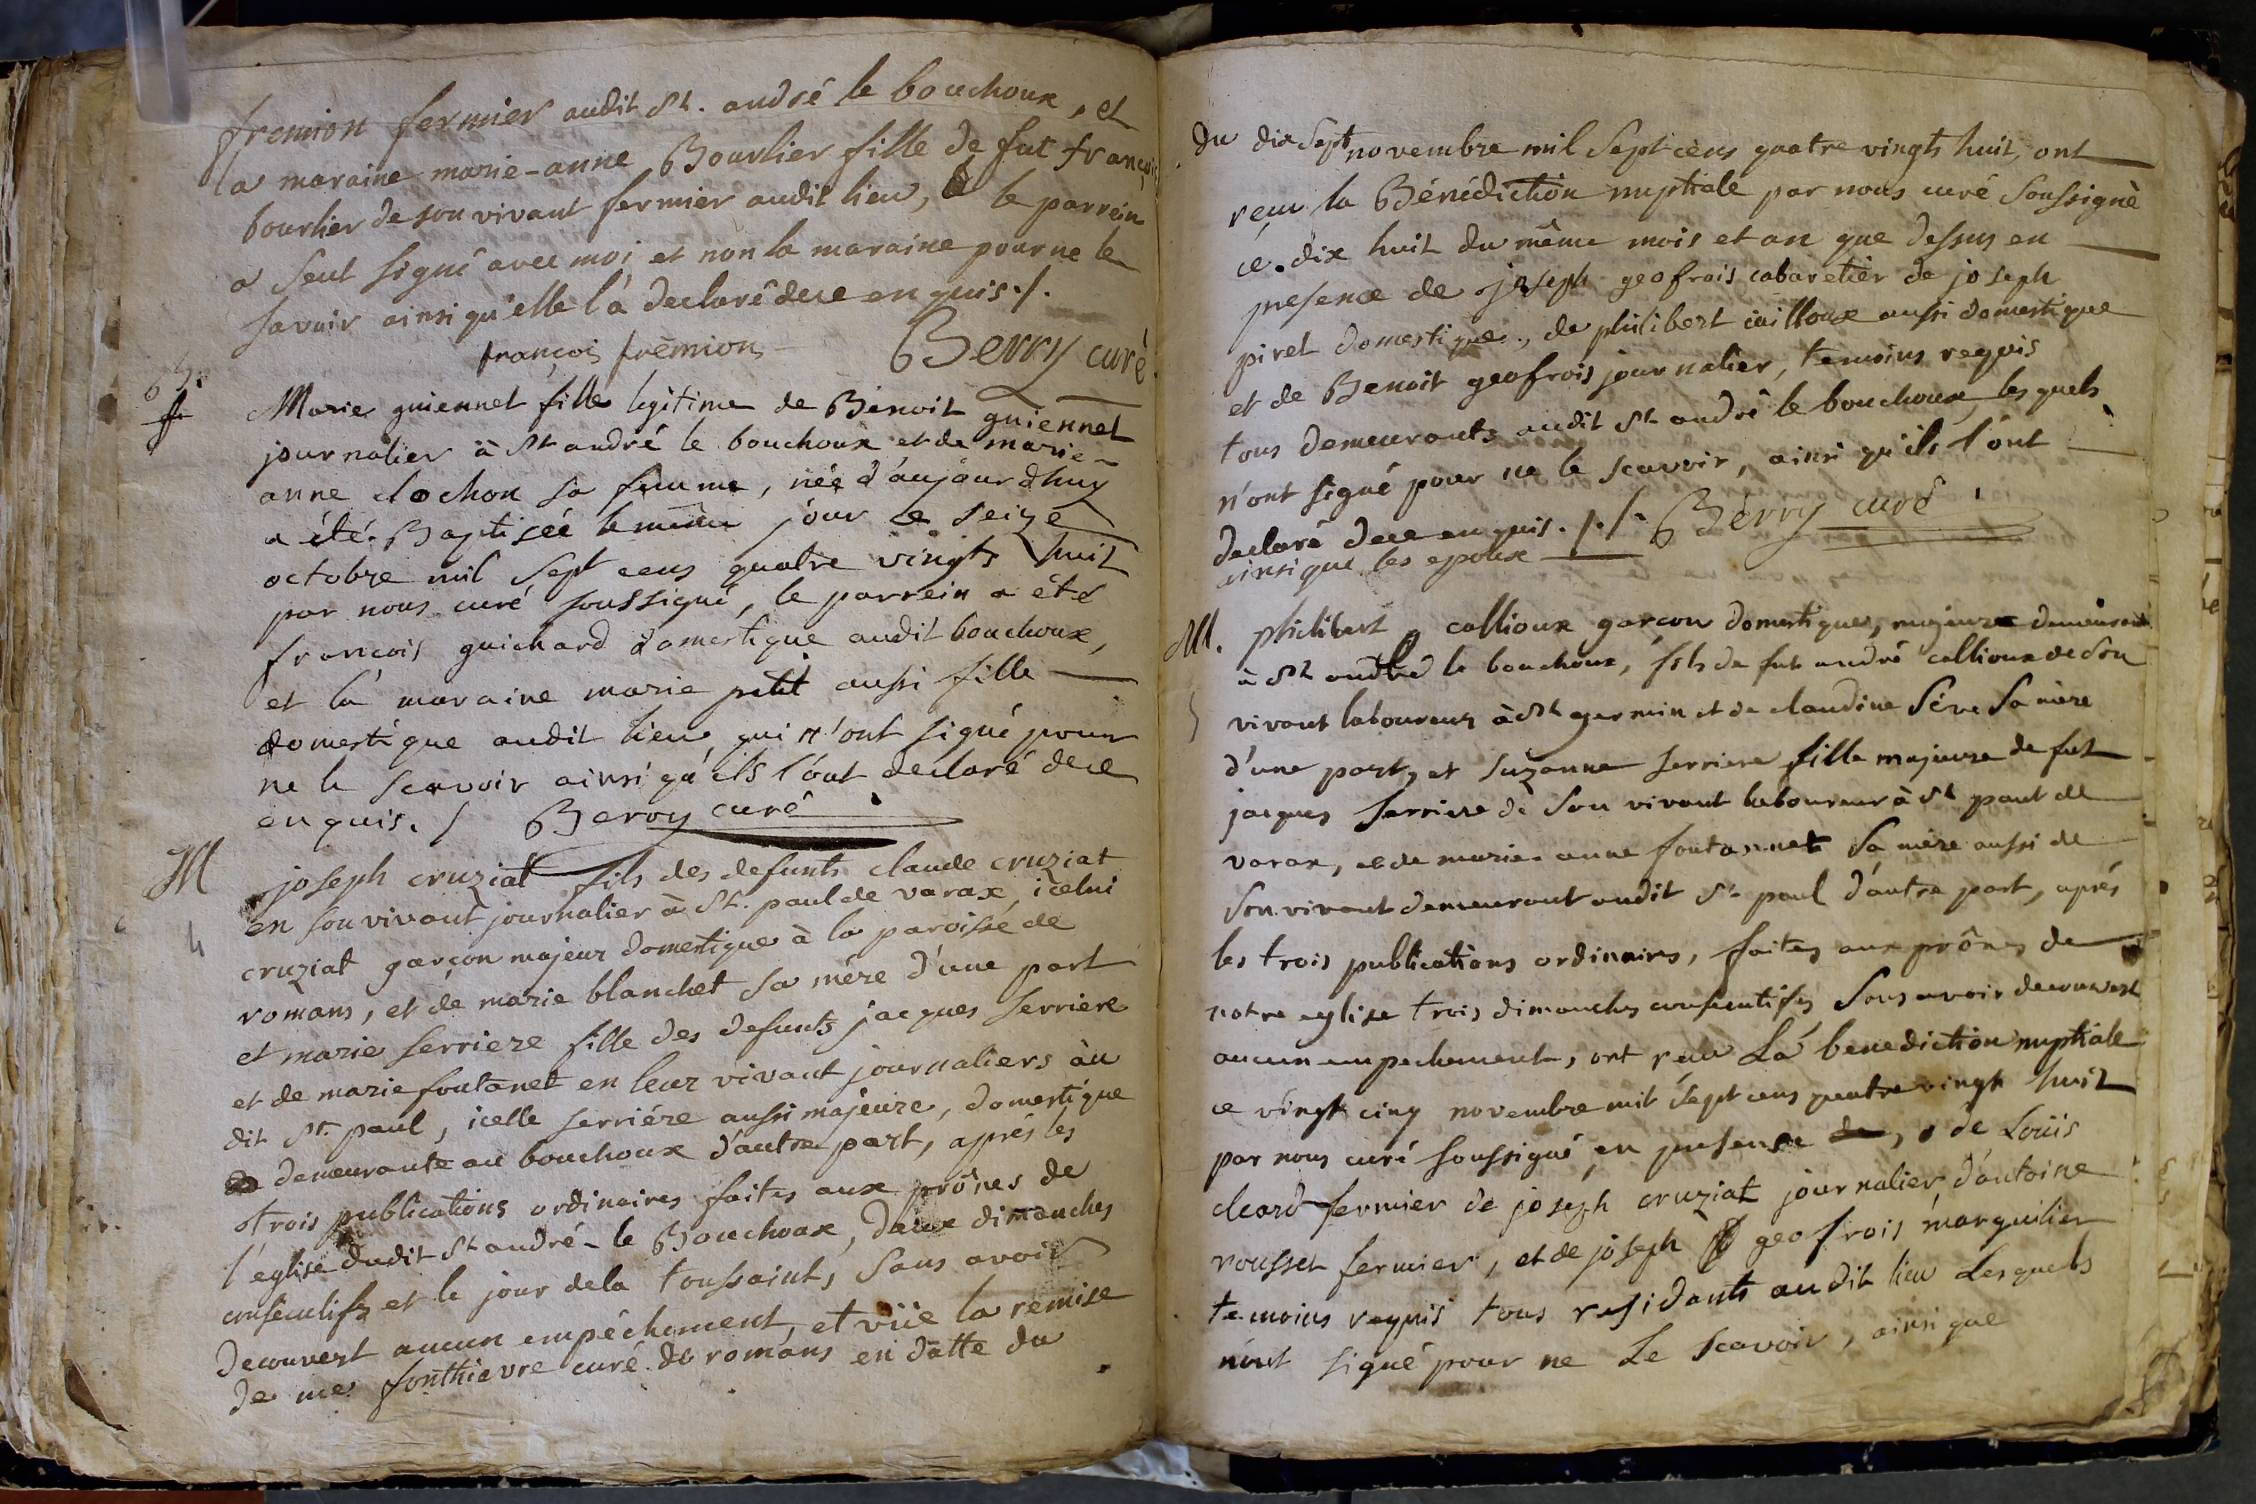 fremion fermier audit St. andré le bouchoux, et
la maraine marie-anne Bourlier fille de fut françois
bourlier de son vivant fermier audit lieu, le parrein
a seul signé avec moi et non la maraine pour ne le
savoir ainsi qu'elle l'a declaré de ce enquis ./.
françois frémion Berry curé
Marie guiennet fille legitime de Benoit guiennet
journalier à St andré le bouchoux et de marie-
anne clochon sa femme, née d'aujourdhuy
a été Baptisée le même jour ce seize
octobre mil sept cens quatre vingts huit
par nous curé soussigné, le parrein a été
francois guichard domestique audit bouchoux,
et la maraine marie petit aussi fille
domestique audit lieu qui n'ont signé pour
ne le scavoir ainsi qu'ils l'ont declaré de ce
enquis. / Berry curé
M joseph cruziat fils des defunts claude cruziat
en son vivant journalier à St. paul de varax, icelui
4 cruziat garcon majeur domestique à la paroisse de
romans, et de marie blanchet sa mére d'une part
et marie serriere fille des defunts jacques serriere
et de marie fontanet en leur vivant journaliers au
dit St. paul, icelle serriére aussi majeure, domestique
demeurante au bouchoux d'autre part, aprés les
trois publications ordinaires faites aux prônes de
l'eglise dudit St andré-le Bouchoux, deux dimanches
consecutifs et le jour de la toussaint, sans avoir
decouvert aucun empéchement, et vüe la remise
de mes fonthievre curé de romans en datte du
du dix sept novembre mil sept cens quatre vingts huit, ont
reçu la Bénédiction nuptiale par nous curé soussigné
ce dix huit du même mois et an que dessus en
presence de joseph geofrois cabaretier de joseph
piret domestique, de philibert cailloux aussi domestique
et de Benoit geofrois journalier, temoins requis
tous demeurants audit St andré le bouchoux, les quels
n'ont signé pour ne le scavoir, ainsi qu'ils l'ont
declaré de ce enquis ./. Berry curé
ainsi que les epoux
M. philibert callioux garcon domestique, majeure demeurant
à St andré le bouchoux, fils de fut andré callioux de son
5 vivant laboureur à St germin et de claudine Séve sa mére
d'une part, et suzanne serriere fille majeure de fut
jacques serriere de son vivant laboureur à St paul de
varax, et de marie-anne fontannet sa mére aussi de
son vivant demeurant audit St paul d'autre part, aprés
les trois publications ordinaires, faites aux prônes de
notre eglise trois dimanches consecutifs sans avoir decouvert
aucun empechement, ont reçu La benediction nuptiale
ce vingt cinq novembre mil sept cens quatre vingt huit
par nous curé soussigné, en presence de Loüis
cleard fermier de joseph cruziat journalier d'antoine
rousset fermier, et de joseph geofrois marguilier
temoins requis tous residants audit lieu Lesquels
n'ont signé pour ne Le scavoir, ainsi que